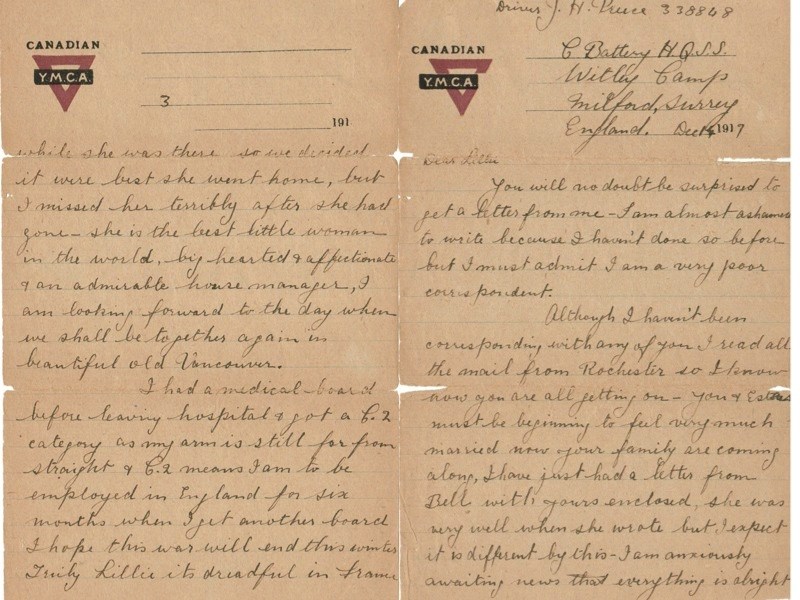 CANADIAN
Y.M.C.A.
3
191
while she was there so we decided
it were best she went home, but
I missed her terribly after she had
gone - she is the best little woman
in the world, big hearted & affectionate
& an admirable house manager, I
am looking forward to the day when
we shall be together again in
beautiful old Vancouver.
I had a medical board
before leaving hospital & got a C.2
category as my arm is still far from
straight & C.2 means I am to be
employed in England for six
months when I get another board
I hope this war will end this winter
Truly Lillie its dreadful in France
Driver J. H. 338848
CANADIAN
Y.M.C.A.
C Battery H.Q.S.S.
Witley Camp
Milford, Surrey
England. Dec 1917
Dear Lillie
You will no doubt be surprised to
get a letter from me - I am almost ashamed
to write because I haven't done so before
but I must admit I am a very poor
correspondent.
Although I haven't been
corresponding with any of you I read all
the mail from Rochester so I know
how you are all getting on - You &
must be beginning to feel very much
married now your family are coming
along, I have just had a letter from
Bell with yours enclosed, she was
very well when she wrote but I expect
it is different by this - I am anxiously
awaiting news that everything is alright